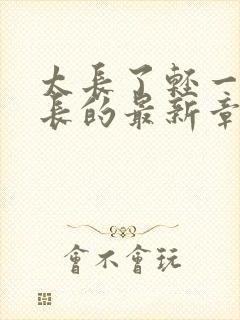 太長了輕一
長的最新章
會不會玩